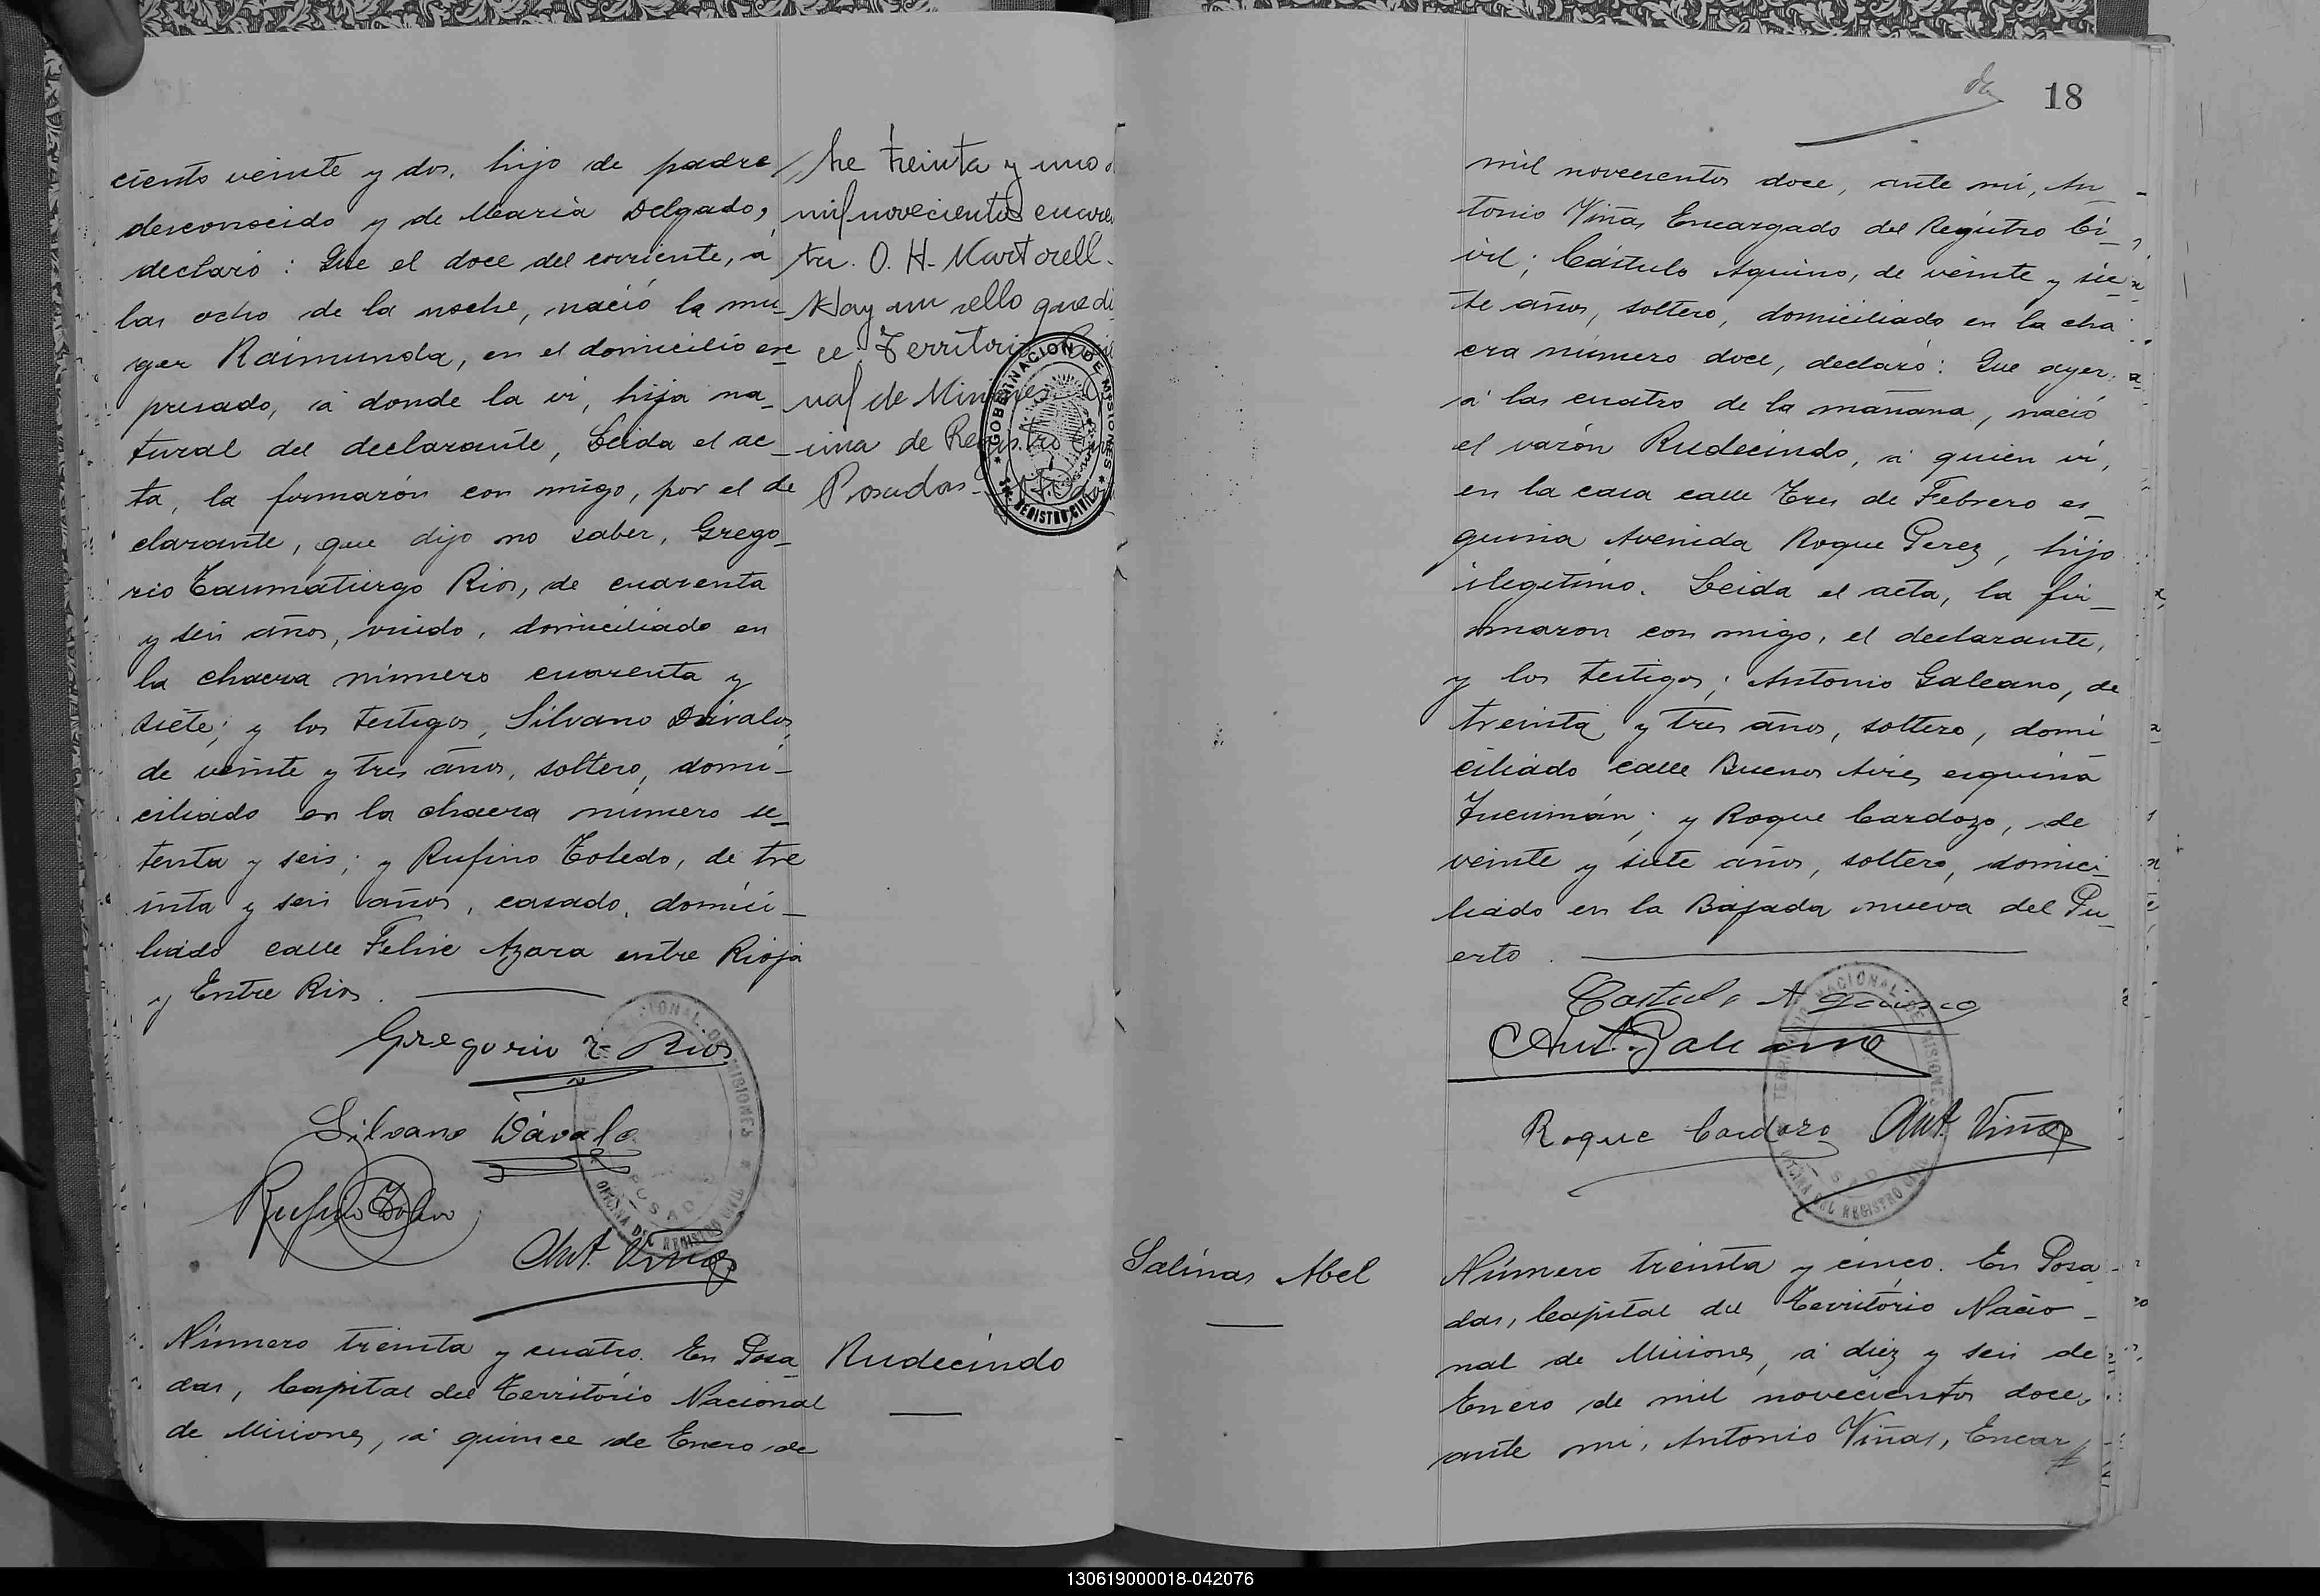 ciento veinte y dos, hijo de padre
desconocido y de Maria Delgado,
declaró: Que el doce del corriente, á
las ocho de la noche, nació la mu_
ger Raimunda, en el domicilio ex_
presado, á donde la vi, hija na_
tural del declarante, Leida el ac_
ta, la firmarón con migo, por el de
clarante, que dijo no saber, Grego_
rio Taumaturgo Rios, de cuarenta
y seis años, viudo, domiciliado en
la chacra número cuarenta y
siete; y los testigos, Silvano Dávalos,
de veinte y tres años, soltero, domi_
ciliado en la chacra número se_
tenta y seis; y Rufino Toledo, de tre
inta y seis años, casado, domici_
liado calle Felix Azara entre Rioja
y Entre Rios.
Gregorio T. Rios
Silvano Dávalo
Rufino Toledo
Ant. Viñas
Número treinta y cuatro. En Posa_
das, Capital del Território Nacional
de Misiones, á quince de Enero de
bre treinta y uno
mil novecientos cuaren
ta. O. H. Martorell.
Hay un sello que di
ce Territorio
nal de Misiones
cina de Registro
Posadas
GOBERNACION DE MISIONES
REGISTRO CIVIL
Rudecindo
18
mil novecientos doce, ante mi, An_
tonio Viñas Encargado del Registro Ci_
vil; Cástulo Aquino, de veinte y sie_
te años, soltero, domiciliado en la cha
cra número doce, declaró: Que ayer,
á las cuatro de la mañana, nació
el varón Rudecindo, á quien vi,
en la casa calle Tres de Febrero es_
quina Avenida Roque Perez, hijo
ilegitimo. Leida el acta, la fir_
maron con migo, el declarante,
y los testigos; Antonio Galeano, de
treinta y tres años, soltero, domi
ciliado calle Buenos Aires esquina
Tucumán; y Roque Cardozo, de
veinte y siete años, soltero, domici_
liado en la Bajada nueva del Pu_
erto.
Castulo Aquino
Ant. Galeano
Roque Cardozo Ant. Viñas
TERRITORIO NACIONAL DE MISIONES
OFICINA DEL REGISTRO CIVIL
POSADAS
Salinas Abel
Número treinta y cinco. En Posa_
das, Capital del Território Nacio_
nal de Misiones, á diez y seis de
Enero de mil novecientos doce,
ante mi, Antonio Viñas, Encar
130619000018-042076